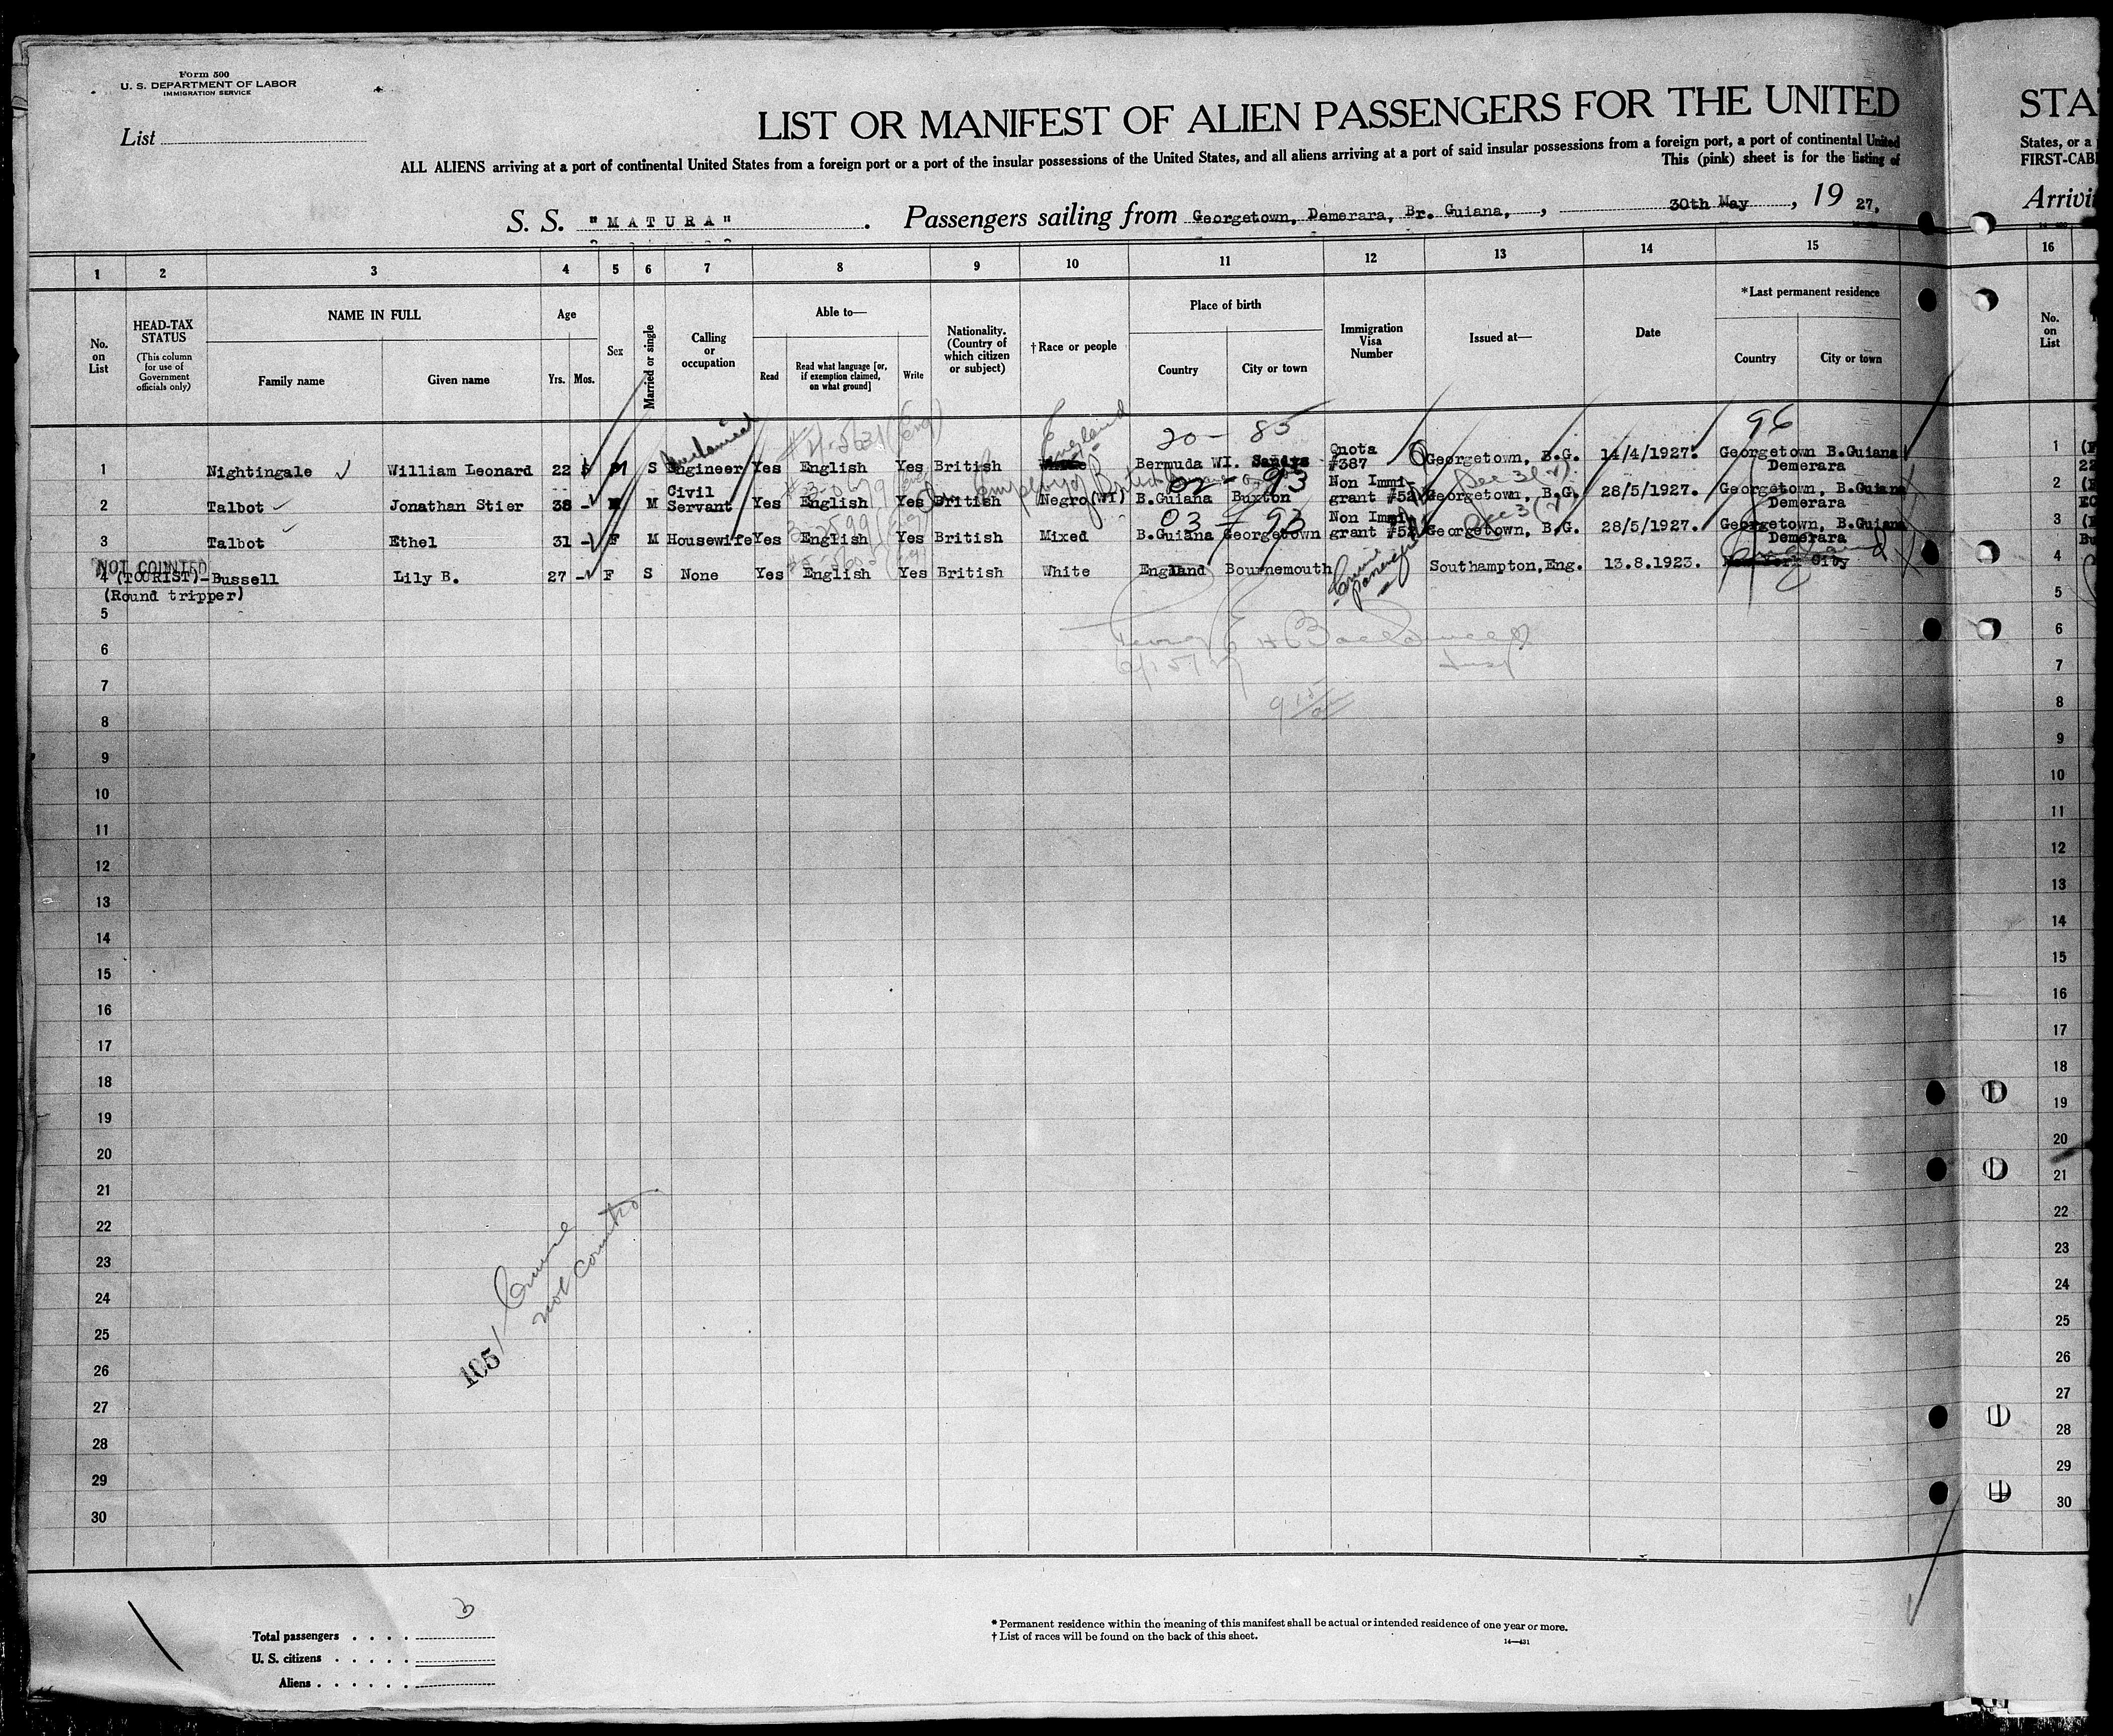 Form 500
U. S. DEPARTMENT OF LABOR
IMMIGRATION SERVICE
List
LIST OR MANIFEST OF ALIEN PASSENGERS FOR THE UNITED
STA
ALL ALIENS arriving at a port of continental United States from a foreign port or a port of the insular possessions of the United States, and all aliens arriving at a port of said insular possessions from a foreign port, a port of continental United
States, or a
This (pink) sheet is for the listing of
FIRST-CAB
S. S. "MATURA" . Passengers sailing from Georgetown, Demerara, Br. Guiana, , 30th May , 19 27.
Arrivi
1 2 3 4 5 6 7 8 9 10 11 12 13 14 15 16
No. on List
HEAD-TAX STATUS
(This column for use of Government officials only)
NAME IN FULL
Family name
Given name
Age
Yrs. Mos.
Sex
Married or single
Calling or occupation
Able to—
Read
Read what language [or, if exemption claimed, on what ground]
Write
Nationality. (Country of which citizen or subject)
†Race or people
Place of birth
Country
City or town
Immigration Visa Number
Issued at—
Date
*Last permanent residence
Country
City or town
No. on List
20 - 85
96
Mechanical
England
1 Nightingale William Leonard 22 S Engineer Yes English Yes British Bermuda WI. Sandys Quota #387 Georgetown, B.G. 14/4/1927. Georgetown B.Guiana Demerara 1
02 - 93
2 Talbot Jonathan Stier 38 - M M Civil Servant Yes English Yes British Negro(WI) B.Guiana Buxton Non Immigrant #52 Georgetown, B.G. 28/5/1927. Georgetown, B.Guiana Demerara 2
03 - 93
3 Talbot Ethel 31 - F M Housewife Yes English Yes British Mixed B.Guiana Georgetown Non Immigrant #52 Georgetown, B.G. 28/5/1927. Georgetown, B.Guiana Demerara 3
NOT COUNTED
4 (TOURIST)- Bussell Lily B. 27 - F S None Yes English Yes British White England Bournemouth Southampton, Eng. 13.8.1923. New York City 4
(Round tripper)
5 5
6 6
7 7
8 8
9 9
10 10
11 11
12 12
13 13
14 14
15 15
16 16
17 17
18 18
19 19
20 20
21 21
22 22
23 23
24 24
25 25
26 26
27 27
28 28
29 29
30 30
105/
not counted
Total passengers . . . . 3
U. S. citizens . . . . .
Aliens . . . . . .
* Permanent residence within the meaning of this manifest shall be actual or intended residence of one year or more.
† List of races will be found on the back of this sheet.
14—431